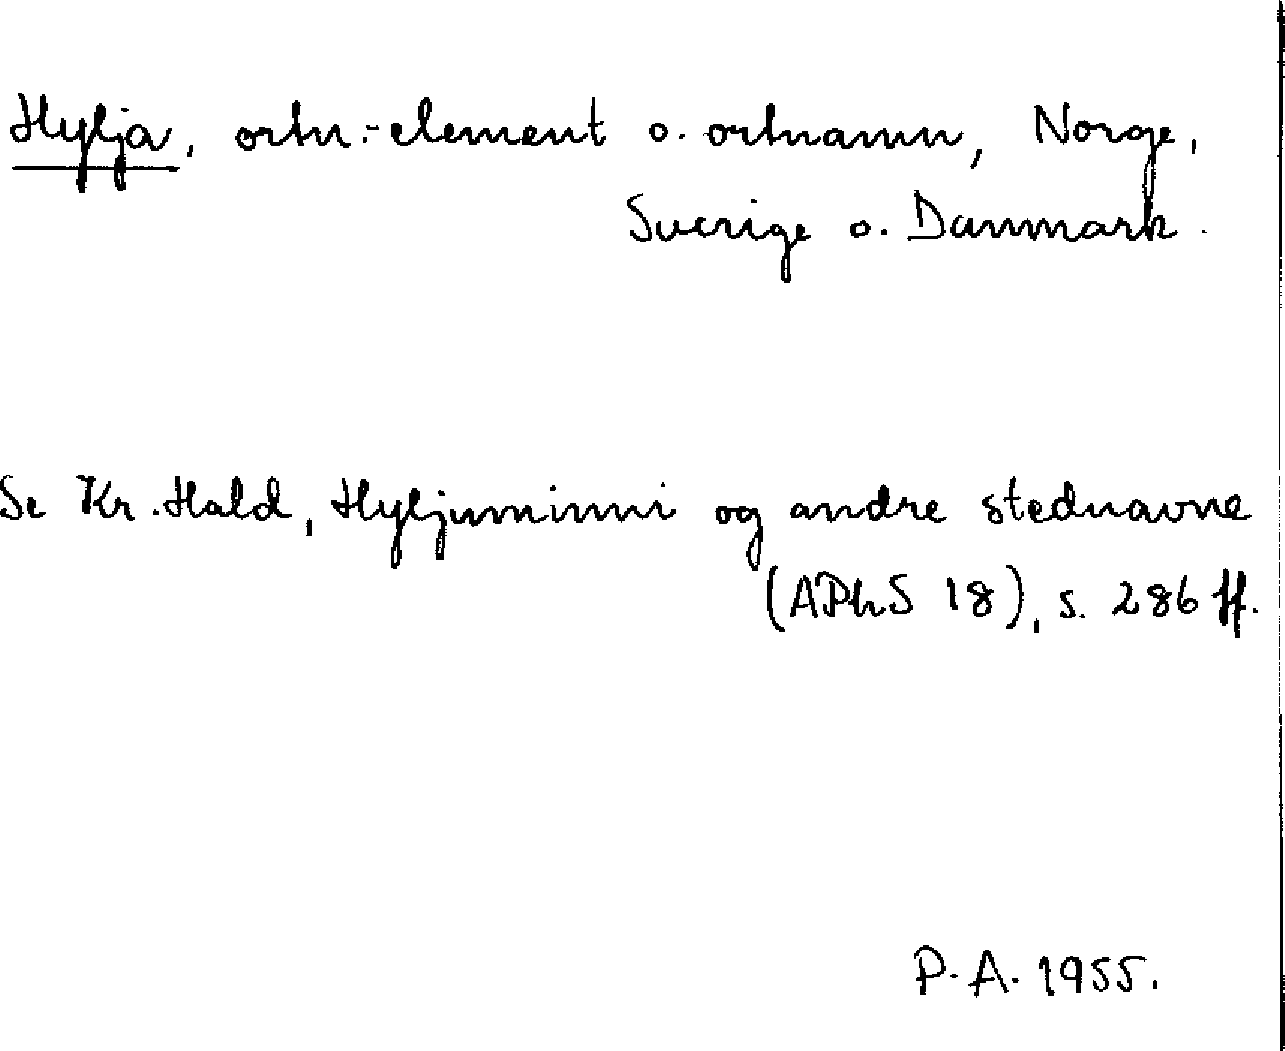 Hylja, ortn.-element o. ortnamn, Norge,
Sverige o. Danmark.
Se Kr. Hald, Hyljuminni og andre stednavne
(APhS 18), s. 286 ff.
P. A. 1955.